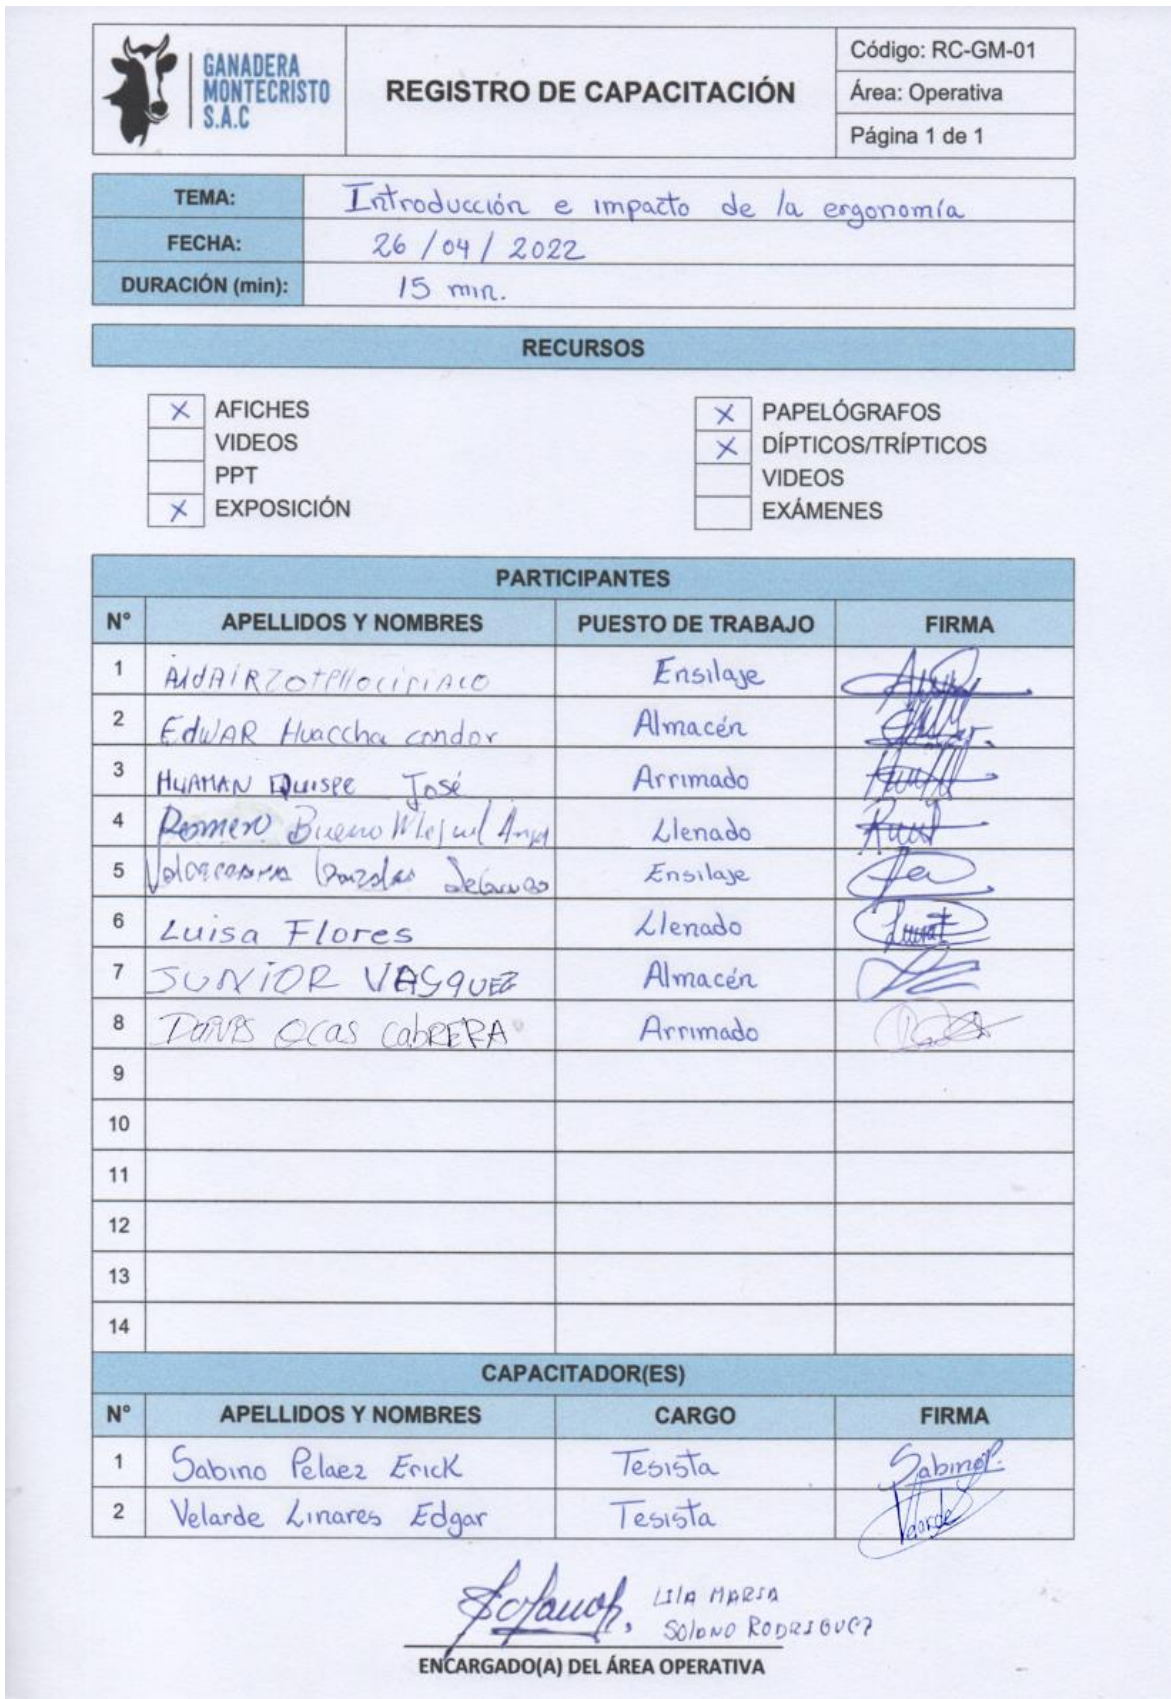 GANADERA
MONTECRISTO
S.A.C
REGISTRO DE CAPACITACIÓN
Código: RC-GM-01
Área: Operativa
Página 1 de 1
TEMA: Introducción e impacto de la ergonomía
FECHA: 26/04/2022
DURACIÓN (min): 15 min.
RECURSOS
X AFICHES
VIDEOS
PPT
X EXPOSICIÓN
X PAPELÓGRAFOS
X DÍPTICOS/TRÍPTICOS
VIDEOS
EXÁMENES
PARTICIPANTES
N° APELLIDOS Y NOMBRES PUESTO DE TRABAJO FIRMA
1 Ensilaje
2 EdWAR Huaccha condor Almacén
3 HUAMAN Quispe José Arrimado
4 Romero Bueno Miguel Llenado
5 Ensilaje
6 Luisa Flores Llenado
7 JUNiOR VASQUEZ Almacén
8 Ocas CabRERA Arrimado
9
10
11
12
13
14
CAPACITADOR(ES)
N° APELLIDOS Y NOMBRES CARGO FIRMA
1 Sabino Pelaez Erick Tesista SabinoP.
2 Velarde Linares Edgar Tesista Velarde
LILA MARIA
SOLANO RODRIGUEZ
ENCARGADO(A) DEL ÁREA OPERATIVA